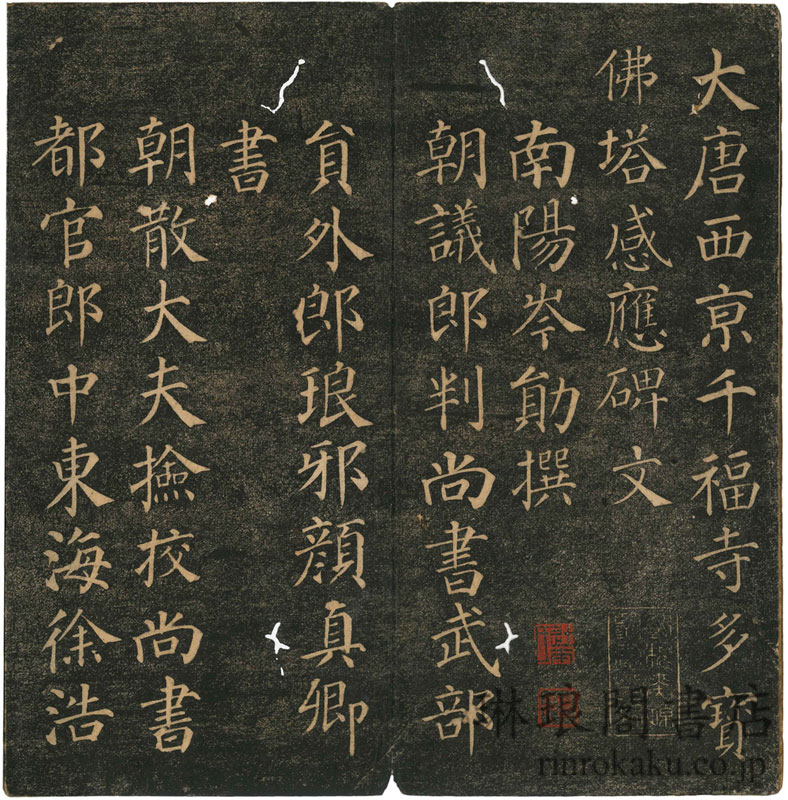 大唐西京千福寺多寶
佛塔感應碑文
南陽岑勛撰
朝議郎判尚書武部
貟外郎琅邪顏真卿
書
朝散大夫撿校尚書
都官郎中東海徐浩
琳琅閣書店
rinrokaku.co.jp